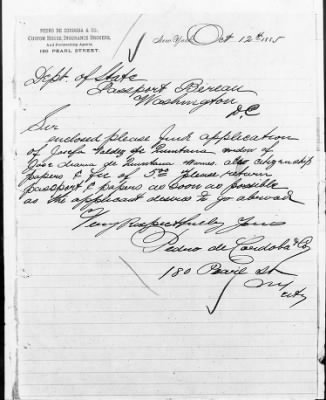 PEDRO DE CORDOBA & CO.
CUSTOM HOUSE, INSURANCE BROKERS,
And Forwarding Agents,
180 PEARL STREET.
New York, Oct 12th 1885
Dept of State
Passport Bereau
Washington
D.C
Sir
enclosed please find application
of Josefa Valdez de Quintana widow of
Jose de Quintana also citizenship
papers & fee of 5.00 Please return
passport & papers as soon as possible
as the applicant desires to go abroad
Very Respectfully Yours
Pedro de Cordoba & Co
180 Pearl St
NY
City